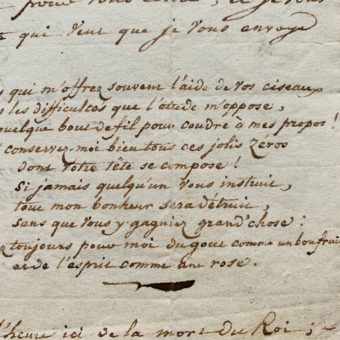 pour vous
qui veut que je vous envoye
s qui m'offrez souvent l'aide de vos ciseaux
s les difficultés que l'étude m'oppose,
quelque bout de fil pour coudre à mes propos !
conservez-moi bien tous ces jolis zéros
dont votre tête se compose !
Si jamais quelqu'un vous instruit,
tout mon bonheur sera détruit,
sans que vous y gagniez grand'chose :
z toujours pour moi du gout comme un bon fruit
et de l'esprit comme une rose.
l'heure ici de la mort du Roi ;